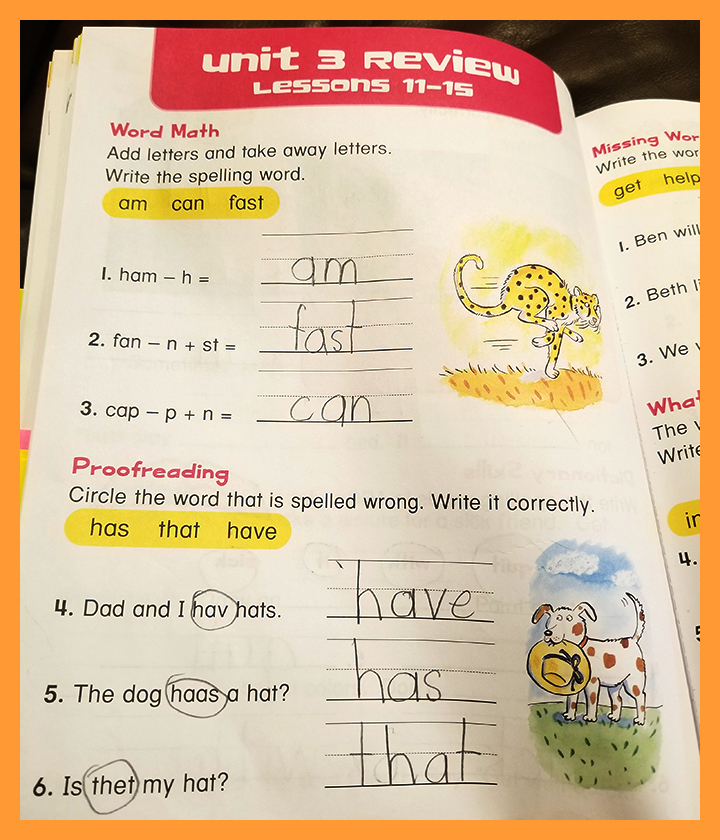 unit 3 Review
Lessons 11-15
Word Math
Add letters and take away letters.
Write the spelling word.
am can fast
1. ham – h = am
2. fan – n + st = fast
3. cap – p + n = can
Proofreading
Circle the word that is spelled wrong. Write it correctly.
has that have
4. Dad and I hav hats. have
5. The dog haas a hat? has
6. Is thet my hat? that
Missing Wor
Write the wor
get help
1. Ben will
2. Beth li
3. We
What
The
Write
in
4.
5